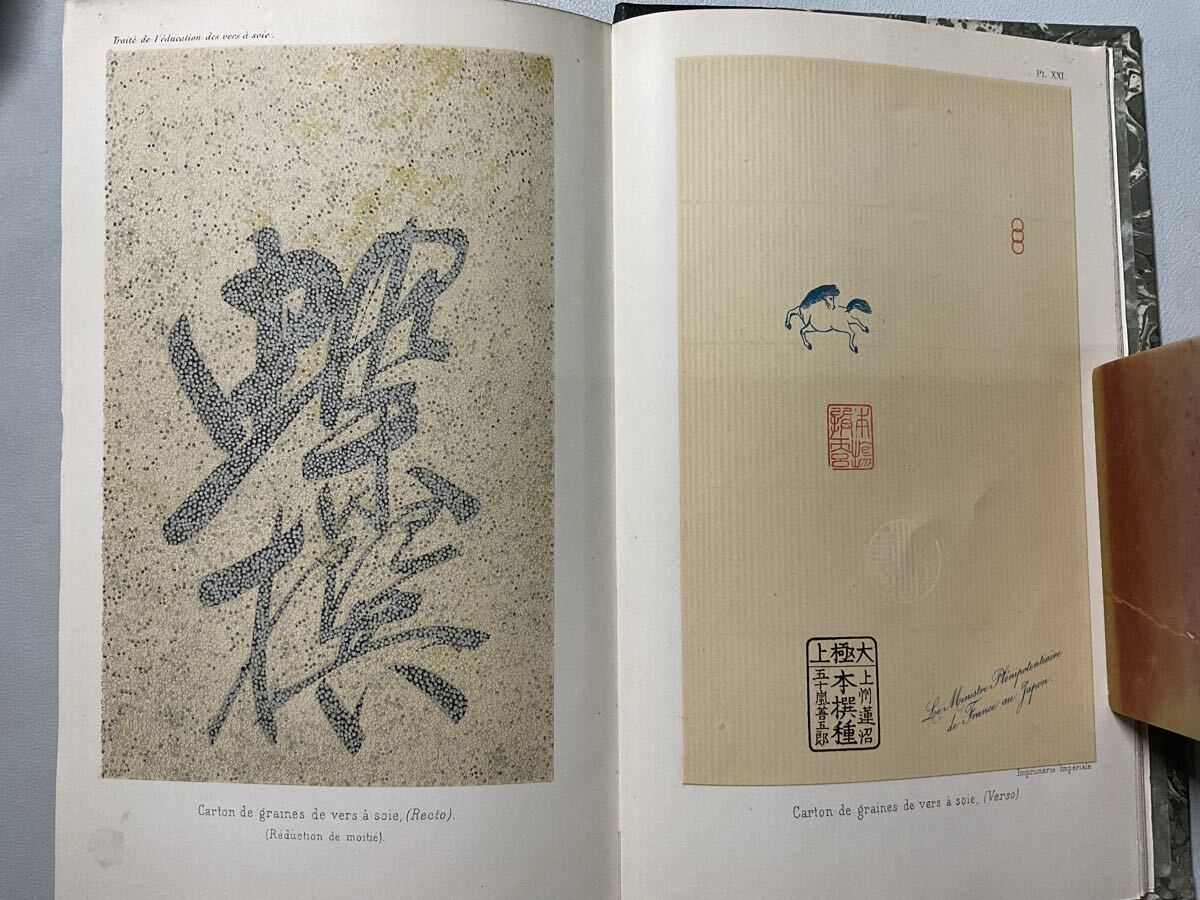 Traité de l'éducation des vers à soie.
撰
Carton de graines de vers à soie, (Recto).
(Réduction de moitié).
PL. XXI.
本場
大極上
上州蓮沼
本撰種
五十嵐善五郎
Le Ministre Plénipotentiaire
de France au Japon.
Imprimerie Impériale
Carton de graines de vers à soie, (Verso).